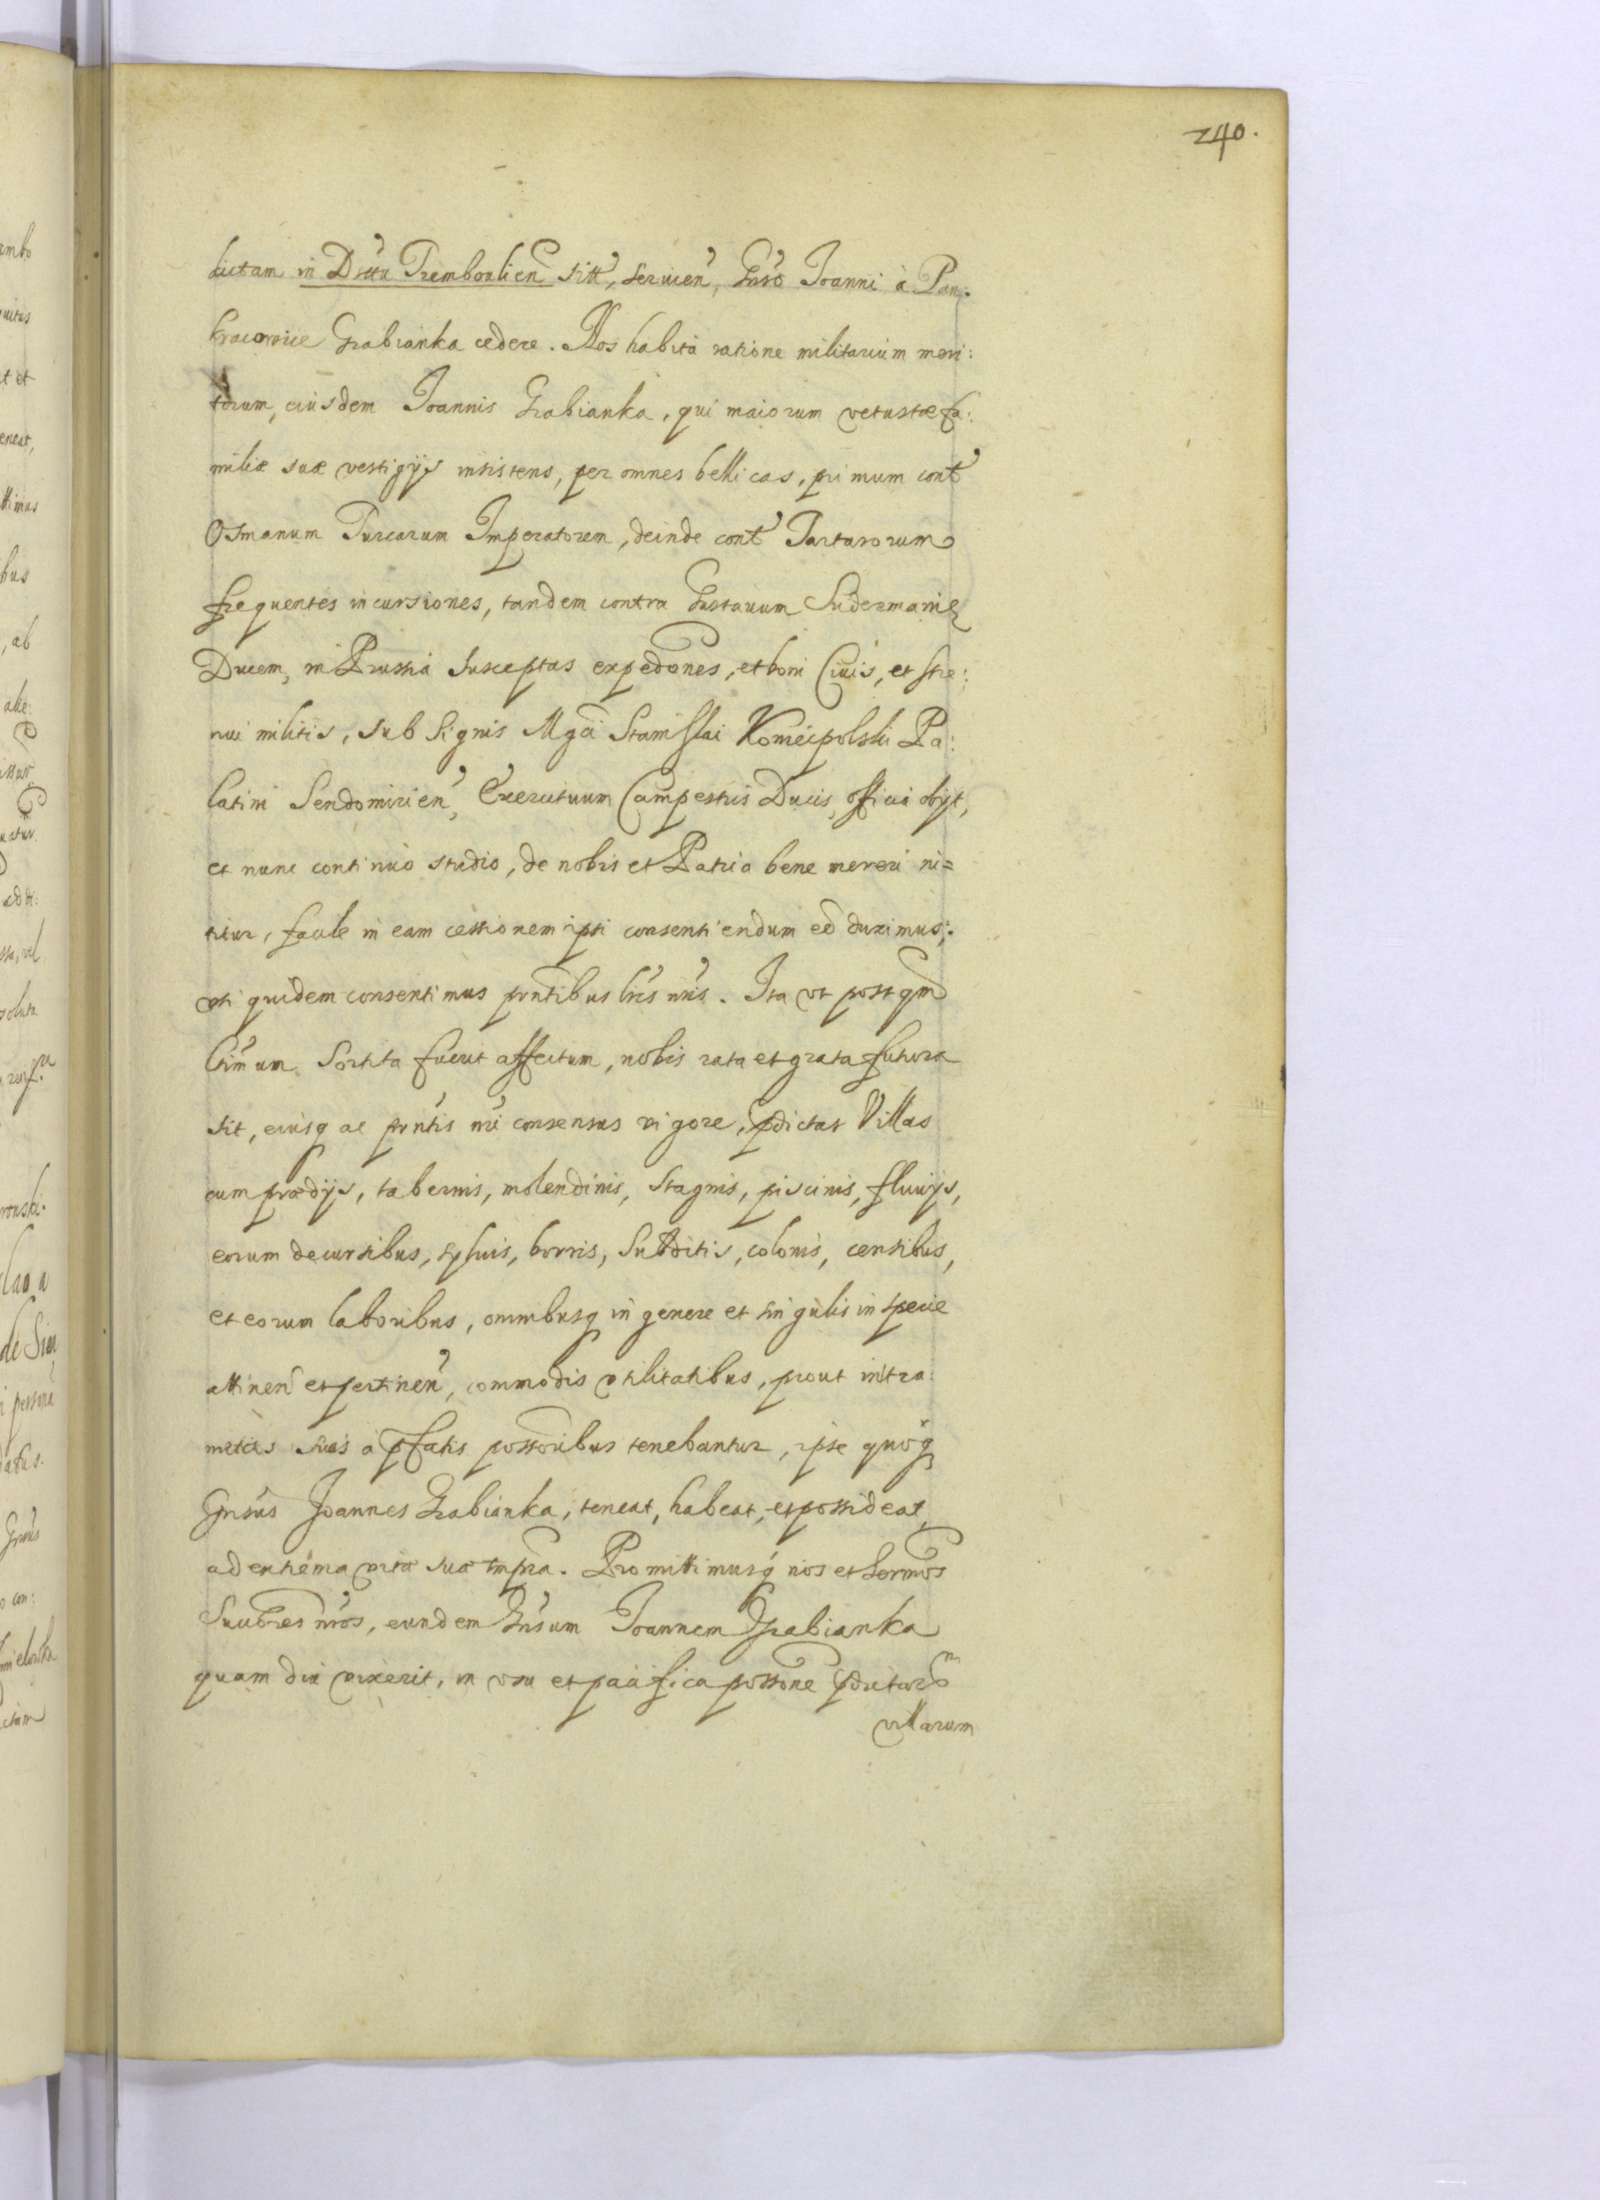 240.
dictam in Dsttu Trembovlien̄ sitt̕, servien̕, Gn̄so Joanni à Pan:
kracovice Grabianka cedere. Nos habitâ ratione militarium meri:
torum, eiusdem Joannis Grabianka, qui maiorum vetustæ fa:
miliæ suæ vestigijs insistens, per omnes bellicas, primum cont̕
Osmanum Turcarum Imperatorem, deinde cont̕ Tartarorum
frequentes incursiones, tandem contra Gustavum Sudermaniæ
Ducem, in Prussia susceptas expedōnes, et boni Civis, et stre:
nui militis, sub signis Mgci Stanislai Koniecpolski Pa:
latini Sendomirien̕, Exercituum Campestris Ducis, officia obijt,
et nunc continuo studio, de nobis et Patria bene mereri ni=
titur, facile in eam cessionem ipsi consentiendum eē duximus;
uti quidem consentimus prn̄tibus lr̄is nr̄is. Ita ut postqm̄
ltīmum sortita fuerit affectum, nobis rata et grata futura
sit, eiusq ac prn̄tis nr̄i consensus vigore, p̄dictas Villas
cum prædijs, tabernis, molendinis, stagnis, piscinis, fluvijs,
eorum decursibus, sylvis, borris, subditis, colonis, censibus,
et eorum laboribus, omnibusq in genere et singulis in specie
attinen̄ et pertinen̕, commodis utilitatibus, prout intra
metas suas a p̄fatis possōribus tenebantur, ipse quoq
Gn̄sus Joannes Grabianka, teneat, habeat, et possideat,
ad extrēma vitæ suæ tmp̄ra. Promittimusq nos et Sermos
Succ̄res nr̄os, eundem Gn̄sum Joannem Grabianka
quam diu vixerit, in usu et pacifica possōne p̄dictarum
villarum